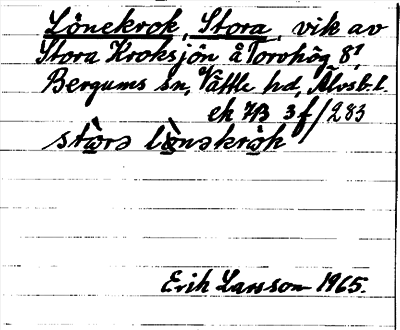 Lönekrok, Stora, vik av
Stora Kroksjön å Torvhög 8¹
Bergums sn, Vättle hd, Älvsb. l.
ek 7B 3f/283
stɷ̀rə lɷ̀nəkrɷ̀k
Erik Larsson 1965.